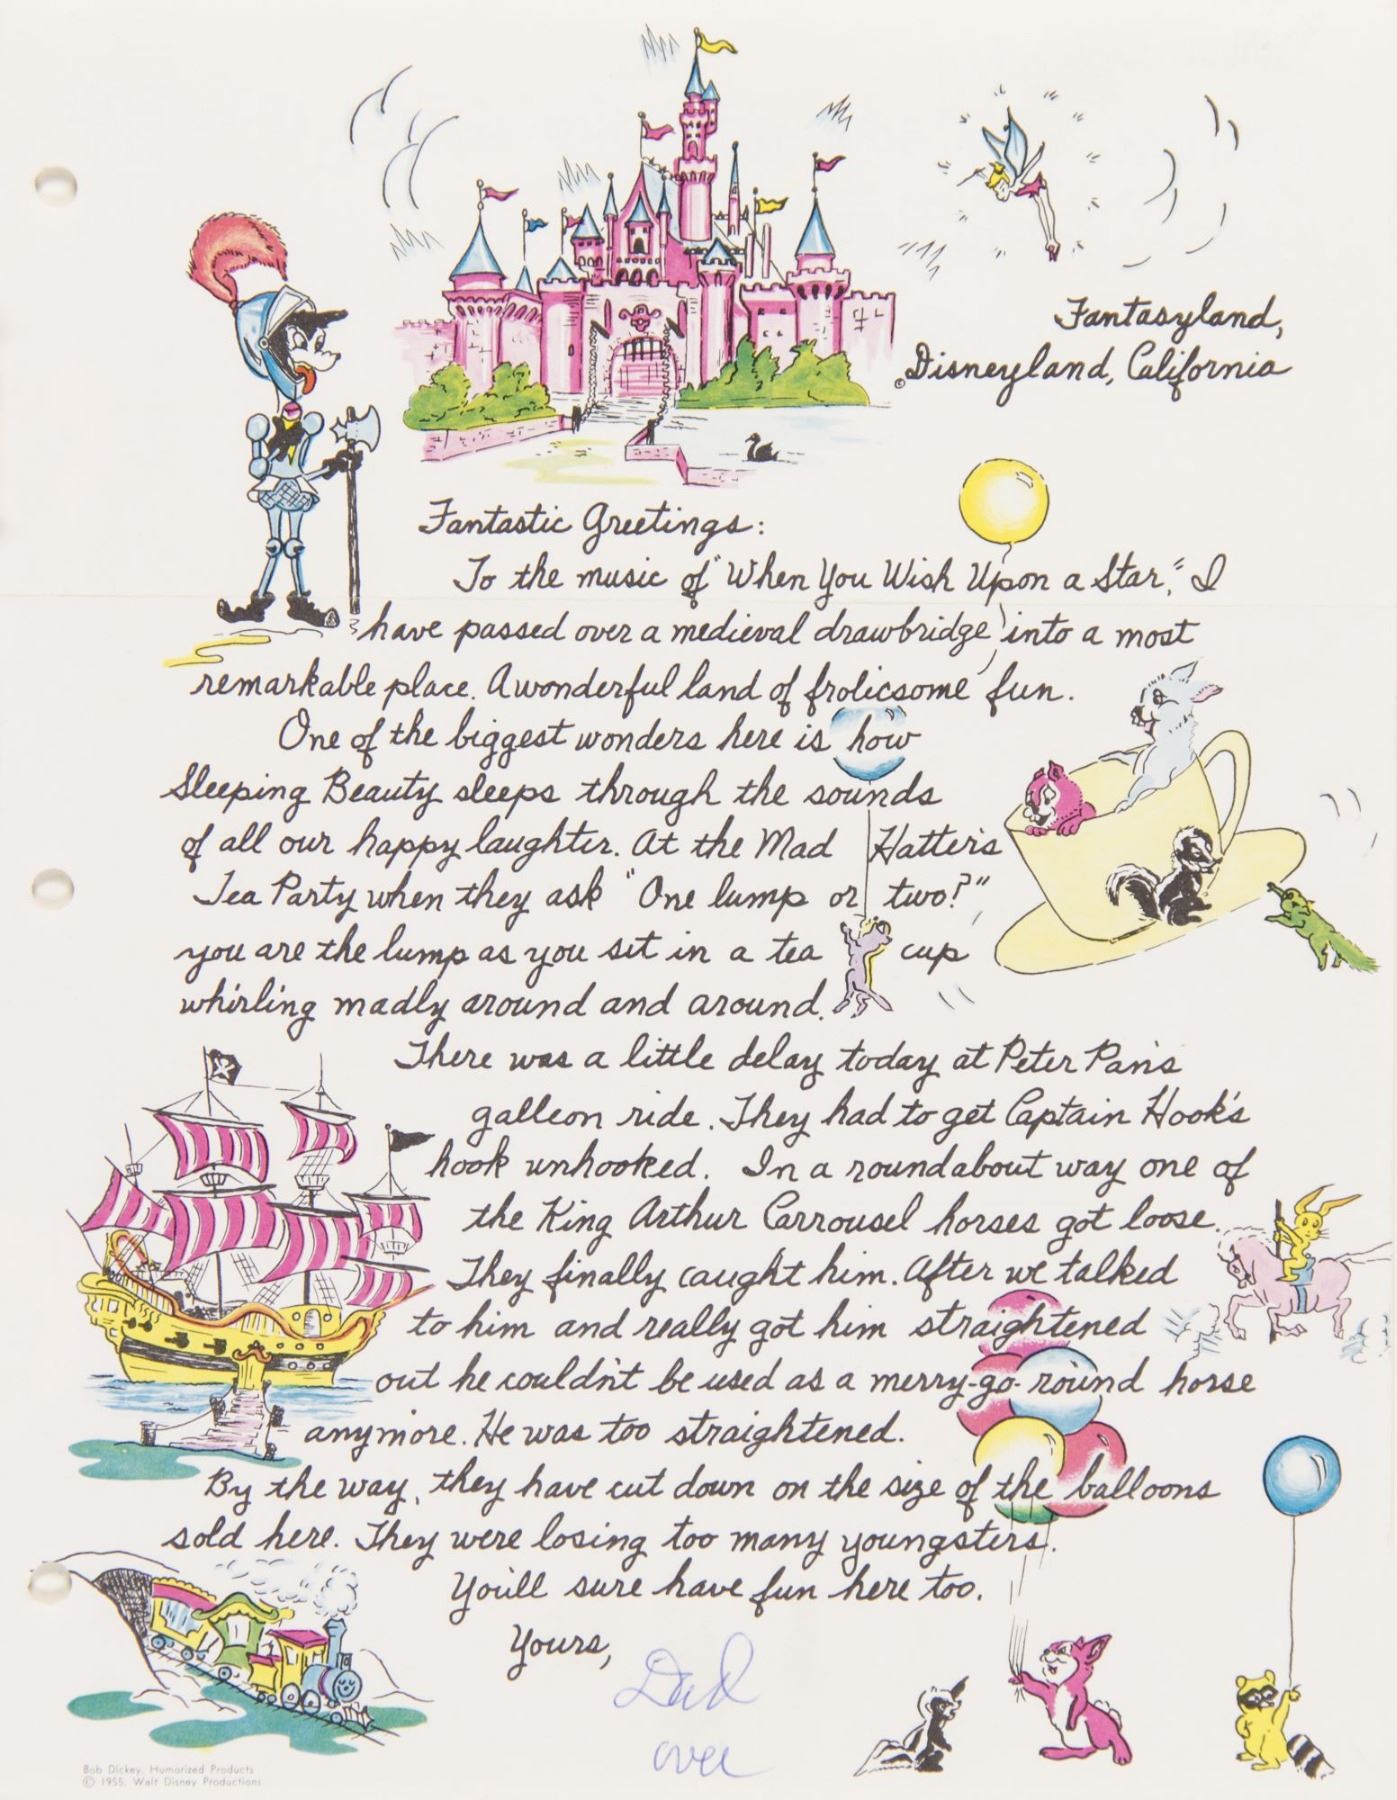 Fantasyland,
© Disneyland, California
Fantastic Greetings:
To the music of "When You Wish Upon a Star," I
have passed over a medieval drawbridge into a most
remarkable place. A wonderful land of frolicsome fun.
One of the biggest wonders here is how
Sleeping Beauty sleeps through the sounds
of all our happy laughter. At the Mad Hatter's
Tea Party when they ask "One lump or two?",
you are the lump as you sit in a tea cup
whirling madly around and around.
There was a little delay today at Peter Pan's
galleon ride. They had to get Captain Hook's
hook unhooked. In a roundabout way one of
the King Arthur Carrousel horses got loose.
They finally caught him. After we talked
to him and really got him straightened
out he couldn't be used as a merry-go-round horse
anymore. He was too straightened.
By the way, they have cut down on the size of the balloons
sold here. They were losing too many youngsters.
You'll sure have fun here too.
Yours,
Dad
over
Bob Dickey, Humorized Products
© 1955, Walt Disney Productions